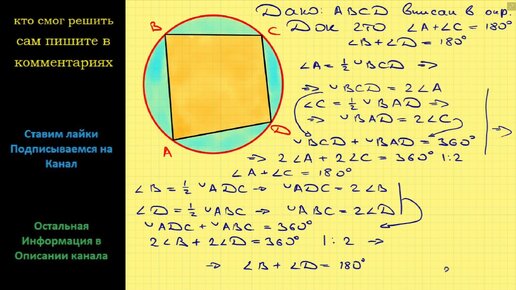 кто смог решить
сам пишите в
комментариях
Ставим лайки
Подписываемся на
Канал
Остальная
Информация в
Описании канала
B
C
A
D
Дано: ABCD вписан в окр.
Док что ∠A+∠C = 180°
∠B+∠D = 180°
∠A = ½ ◡BCD ⇒
⇒ ◡BCD = 2∠A
∠C = ½ ◡BAD ⇒
⇒ ◡BAD = 2∠C
◡BCD + ◡BAD = 360°
⇒ 2∠A + 2∠C = 360° |:2
∠A + ∠C = 180°
∠B = ½ ◡ADC ⇒ ◡ADC = 2∠B
∠D = ½ ◡ABC ⇒ ◡ABC = 2∠D
◡ADC + ◡ABC = 360°
2∠B + 2∠D = 360° |:2 ⇒
⇒ ∠B + ∠D = 180°